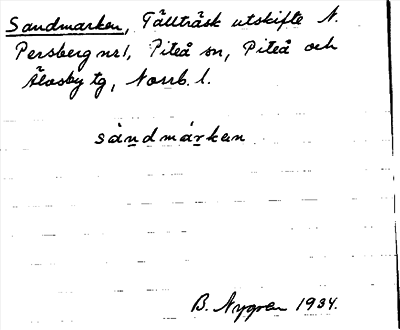 Sandmarken, Tällträsk utskifte N.
Persberg nr 1, Piteå sn, Piteå och
Älvsby tg, Norrb. l.
sándmárken
B. Nygren 1934.